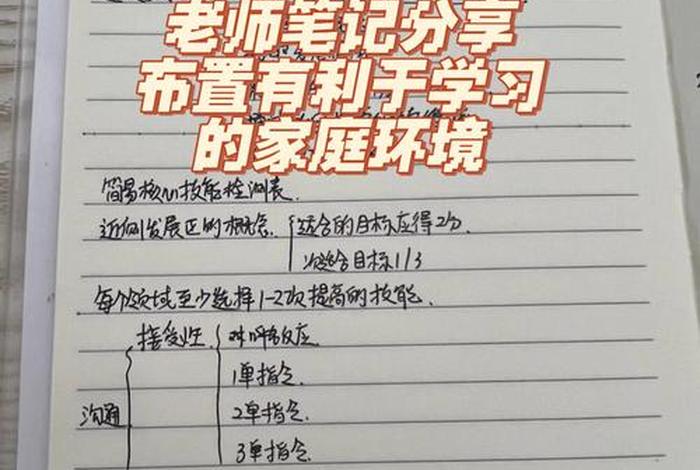 老师笔记分享
布置有利于学习
的家庭环境
简易核心技能检测表.
近侧发展区的概念. 适合的目标应得2分.
次适合目标1/3
每个领域至少选择1-2次提高的技能.
接受性. 对呼名反应
1单指令.
沟通 2单指令.
3单指令.